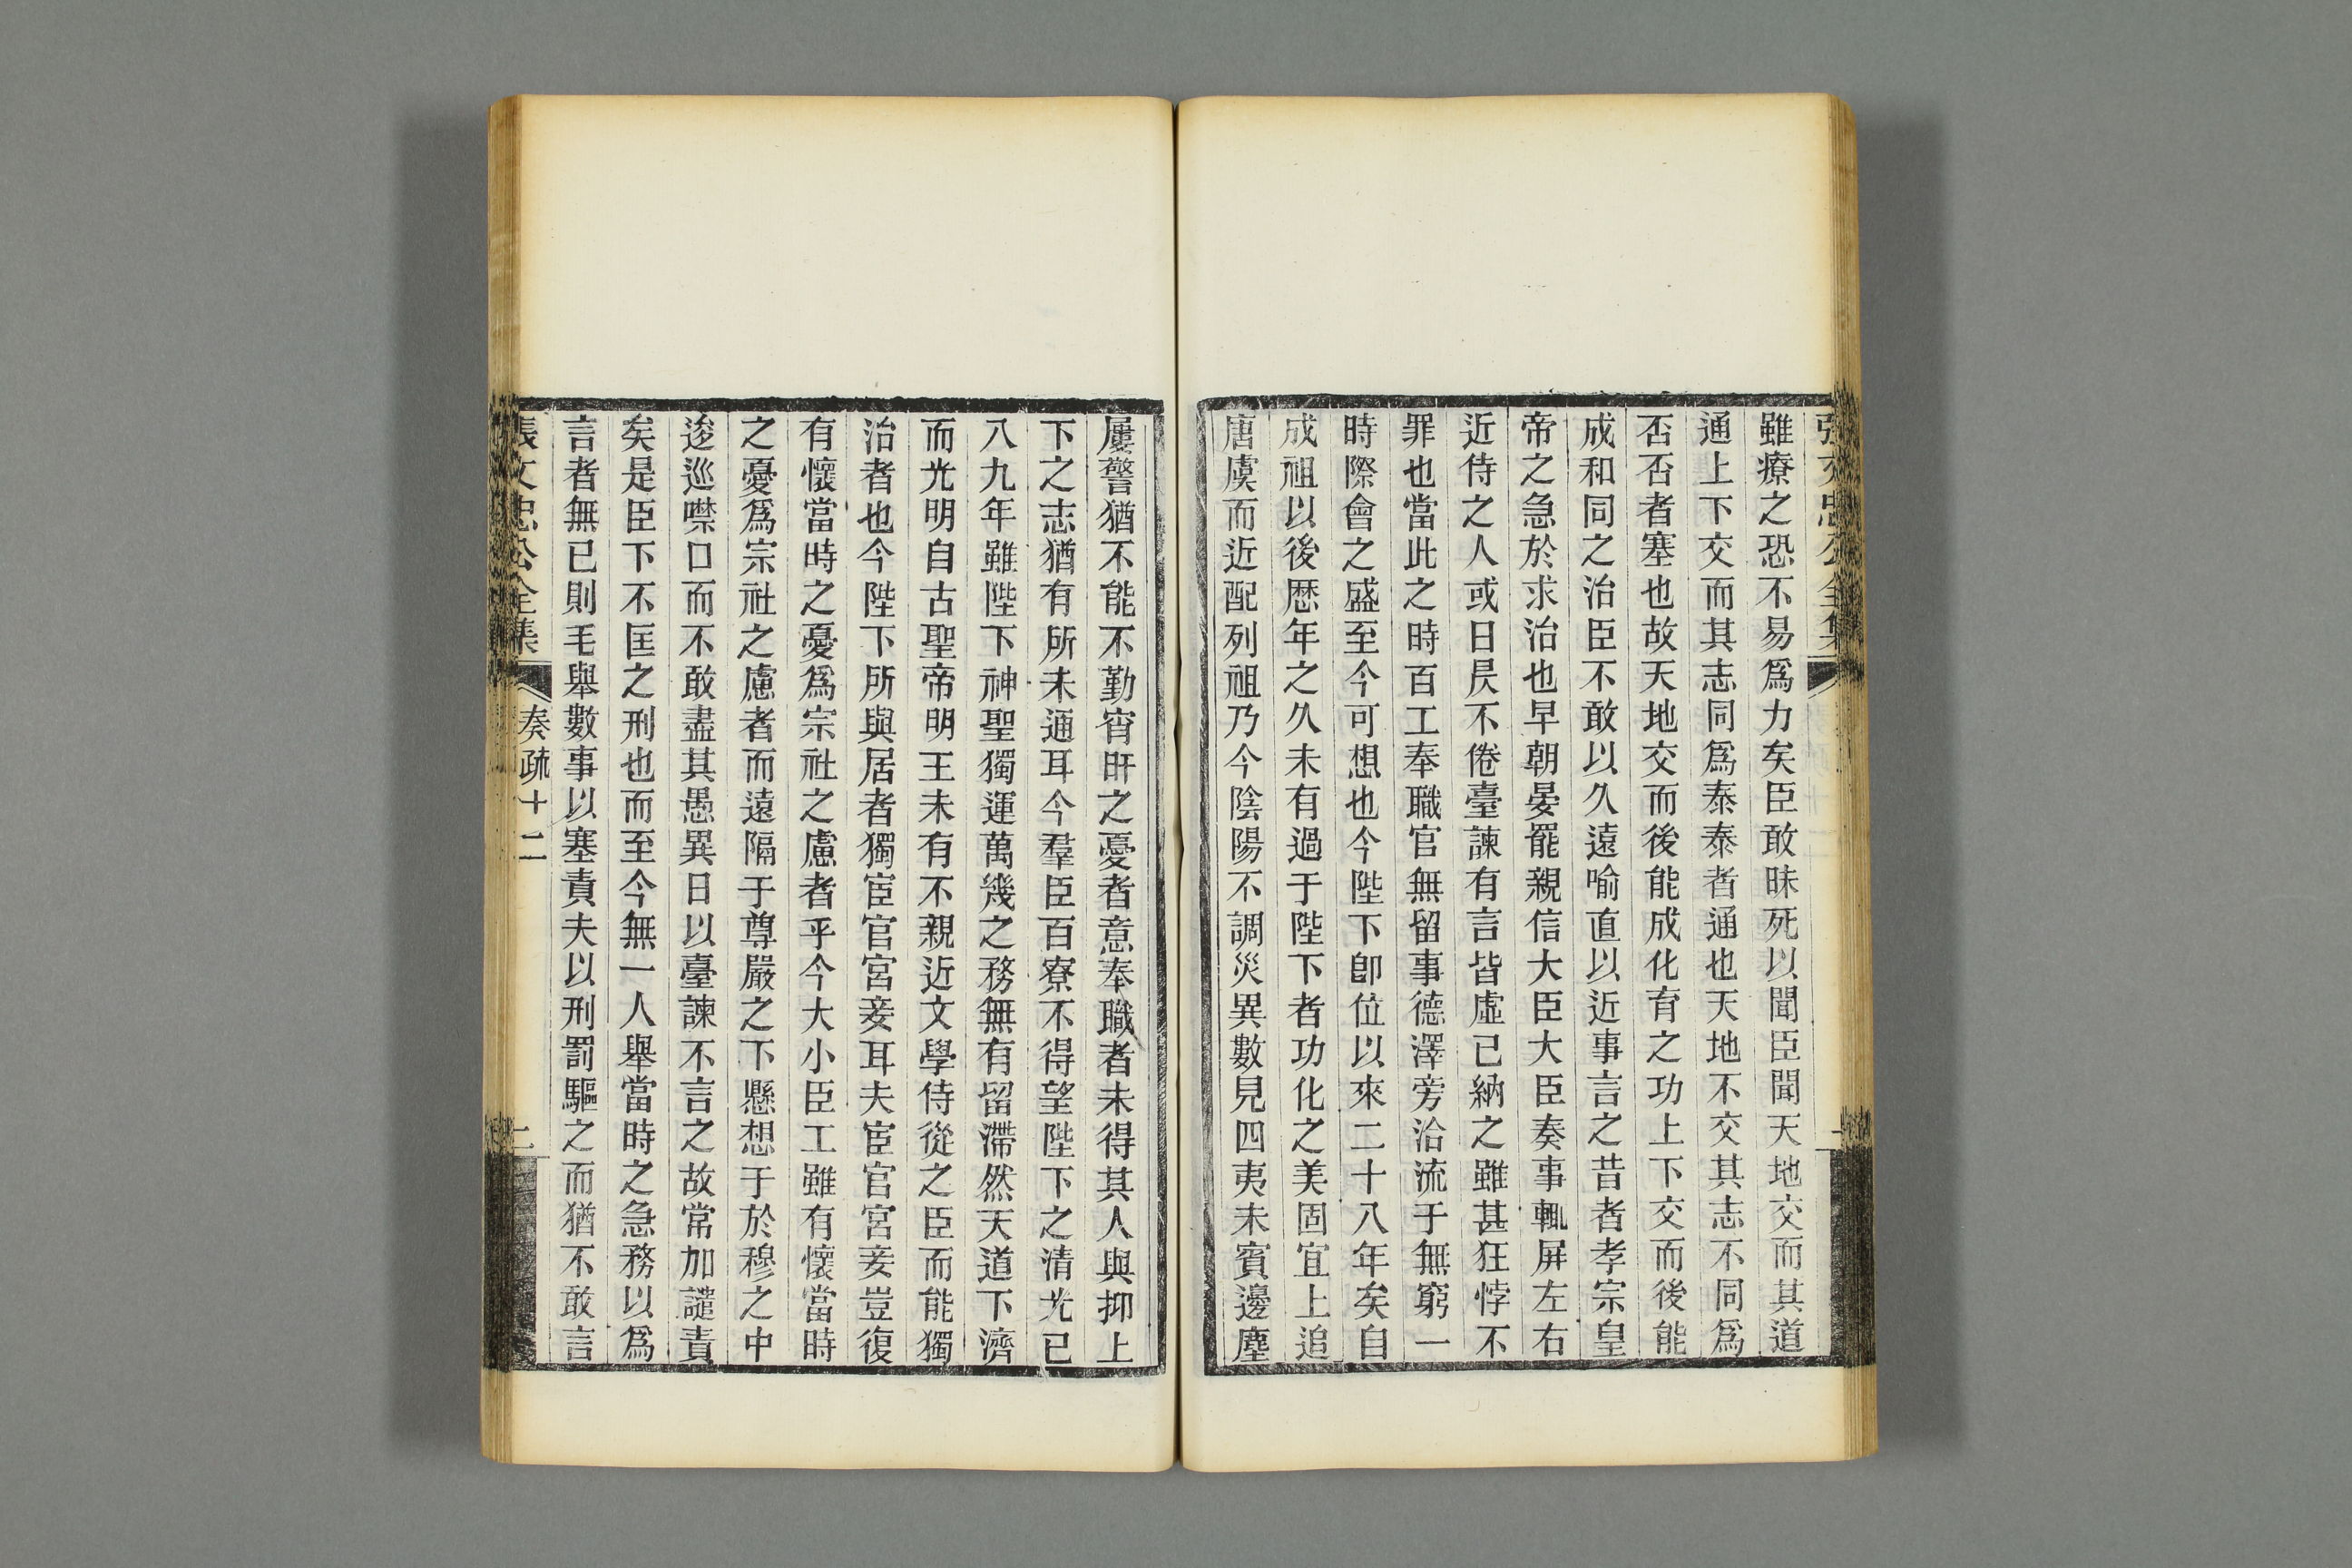 張文忠公全集
雖療之恐不易爲力矣臣敢昧死以聞臣聞天地交而其道
通上下交而其志同爲泰泰者通也天地不交其志不同爲
否否者塞也故天地交而後能成化育之功上下交而後能
成和同之治臣不敢以久遠喻直以近事言之昔者孝宗皇
帝之急於求治也早朝晏罷親信大臣大臣奏事輒屏左右
近侍之人或日昃不倦臺諫有言皆虛已納之雖甚狂悖不
罪也當此之時百工奉職官無留事德澤旁洽流于無窮一
時際會之盛至今可想也今陛下卽位以來二十八年矣自
成祖以後歷年之久未有過于陛下者功化之美固宜上追
唐虞而近配列祖乃今陰陽不調災異數見四夷未賓邊塵
屢警猶不能不勤宵旰之憂者意奉職者未得其人與抑上
下之志猶有所未通耳今羣臣百寮不得望陛下之清光已
八九年雖陛下神聖獨運萬幾之務無有留滯然天道下濟
而光明自古聖帝明王未有不親近文學侍從之臣而能獨
治者也今陛下所與居者獨宦官宮妾耳夫宦官宮妾豈復
有懷當時之憂爲宗社之慮者乎今大小臣工雖有懷當時
之憂爲宗社之慮者而遠隔于尊嚴之下懸想于於穆之中
逡巡噤口而不敢盡其愚異日以臺諫不言之故常加譴責
矣是臣下不匡之刑也而至今無一人舉當時之急務以爲
言者無已則毛舉數事以塞責夫以刑罰驅之而猶不敢言
張文忠公全集 奏疏十二 二